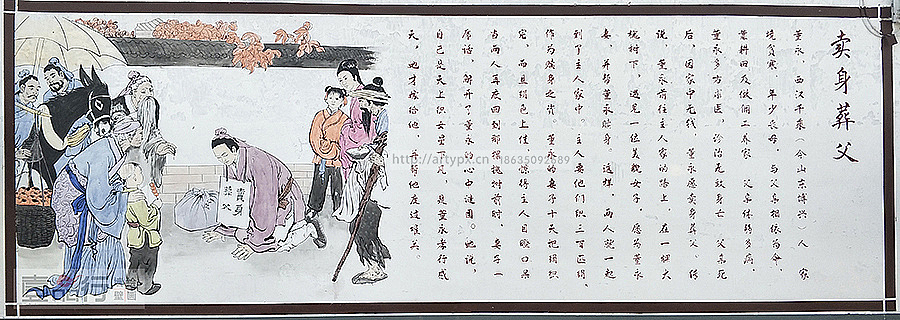 卖身葬父
董永，西汉千乘（今山东博兴）人，家
境贫寒，年少丧母，与父亲相依为命，
靠耕田及做佣工养家，父亲体弱多病，
董永多方求医，诊治无效身亡，父亲死
后，因家中无钱，董永愿卖身葬父。传
说，董永前往主人家的路上，在一棵大
槐树下，遇见一位美貌女子，愿为董永
妻，并帮董永赎身，这样，两人就一起
到了主人家中。主人要他们织三百匹绢，
作为赎身之资。董永的妻子十天把绢织
完，而且绢色上佳，惊得主人目瞪口呆
当两人再度回到那棵槐树前时，妻子一
席话，解开了董永的心中谜团。她说，
自己是天上织女星下凡，是董永孝行感
天，她才嫁给他，并帮他度过难关。
賣身
葬父
http://artypx.cn 18635092689
壹品行壁画